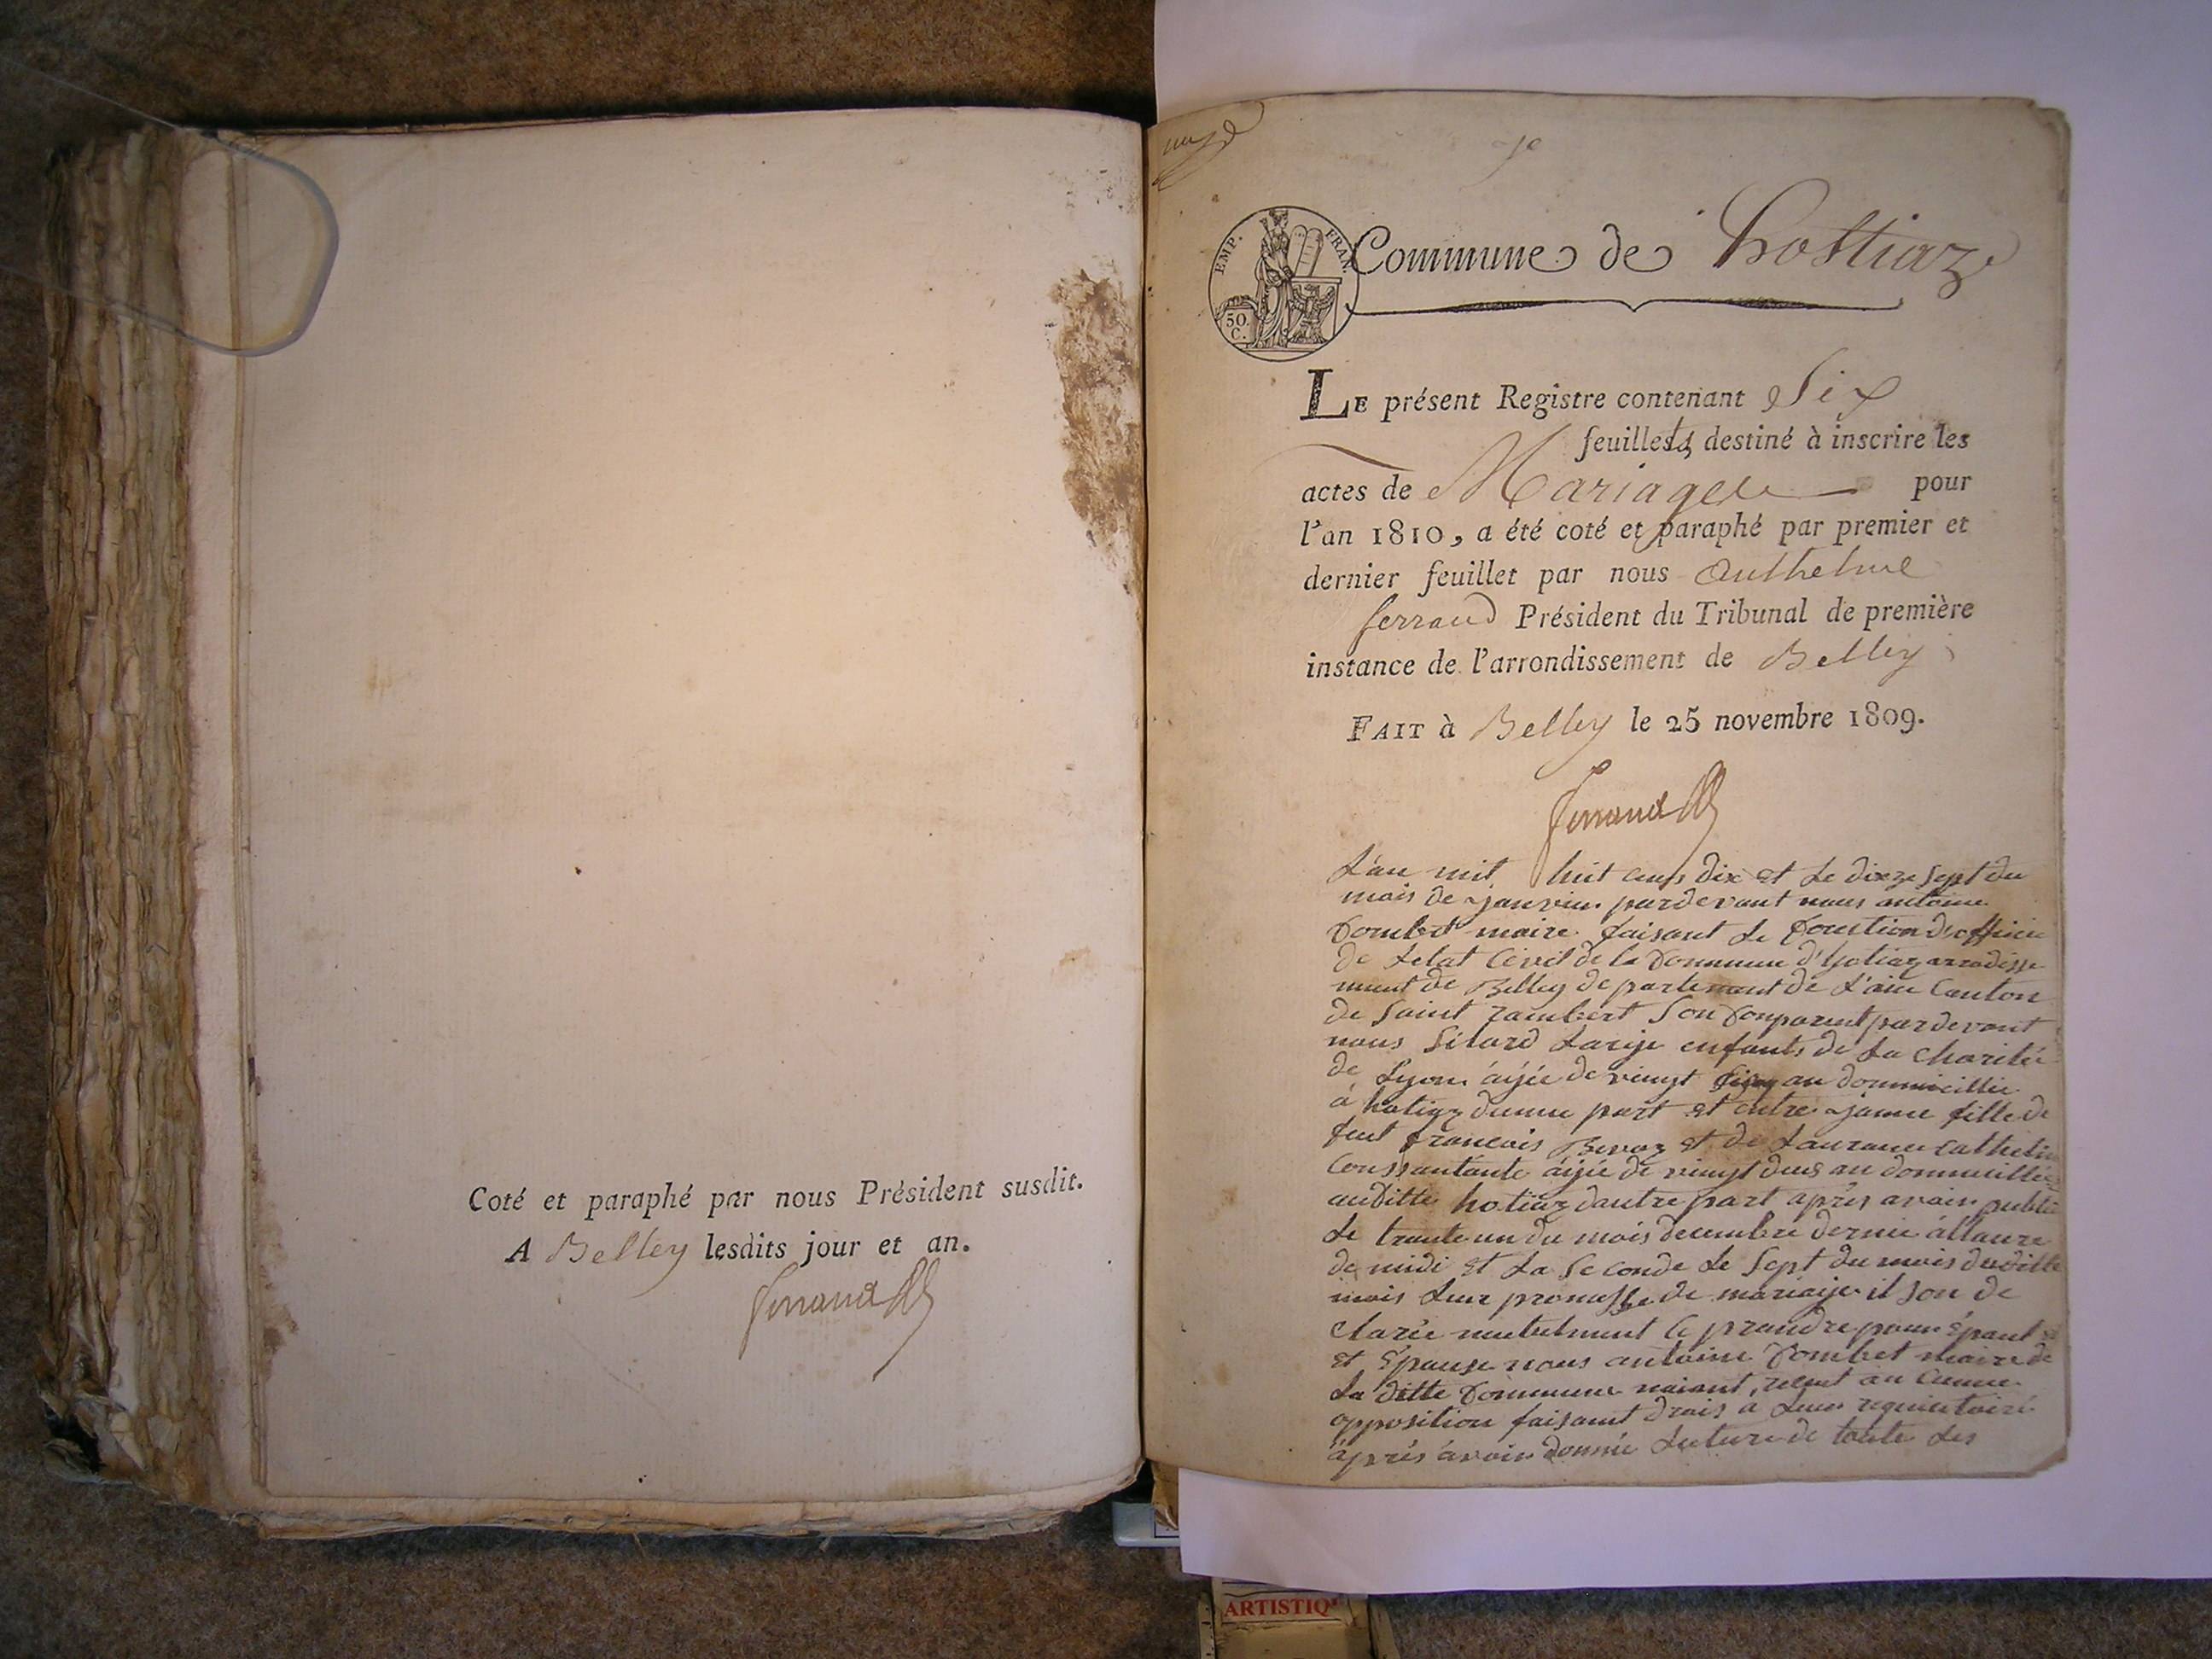 Coté et paraphé par nous Président susdit.
A Belley lesdits jour et an.
Ferrand
EMP. FRAN.
50.
C.
Commune de hostiaz
LE présent Registre contenant Six
feuillets destiné à inscrire les
actes de Mariages pour
l'an 1810, a été coté et paraphé par premier et
dernier feuillet par nous Anthelme
ferrand Président du Tribunal de première
instance de l'arrondissement de Belley
FAIT à Belley le 25 novembre 1809.
Ferrand
L'an mil huit cens dix et le dixe sept du
mois de janvier pardevant nous antoine
Combet maire faisant le fonction d'officie
de l'etat Cevil de la Commune d'hotiaz arrodisse
ment de Belley departemant de L'ain Canton
de Saint rambert Son Conparent pardevant
nous Silard Larije enfants de La charitée
de Lyon âijée de vingt an dommicillie
a hotiaz dunne part et entre janne fille de
feut francois Bevoz et de Laurance Catheline
Conssantante âijée de vingt deus an dommicillée
auditte hotiaz dautre part après avoir publié
Le trante un du mois decembre dernie a l'aure
de midi et La Seconde Le Sept du mois duditte
mois Leur promesse de mariaije il son de
clarée mutuelment Ce prandre pour épaut
et Épause nous antoine Combet maire de
La ditte Commune naiant, reçut au Cunne
opposition faisant drois a Leur requisitoire
après avoir donnée Lecture de toute Les
ARTISTIQ